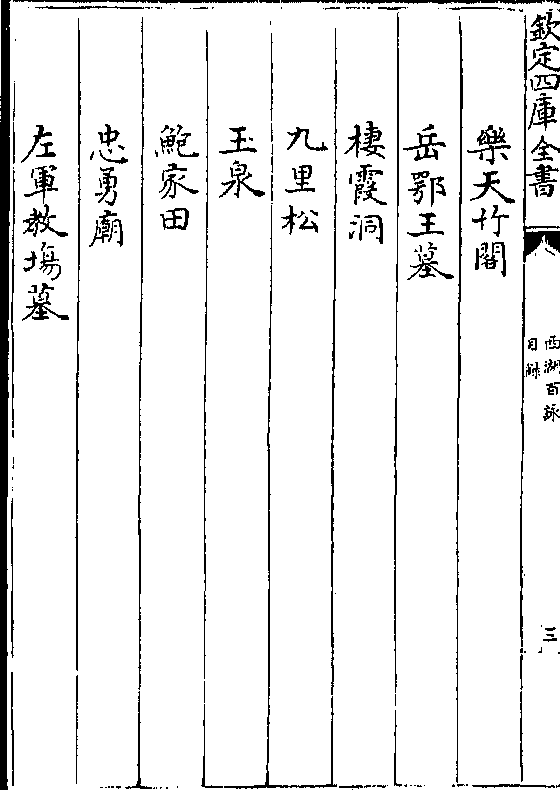 欽定四庫全書
西湖百詠
目錄
三
樂天竹閣
岳鄂王墓
棲霞洞
九里松
玉泉
鮑家田
忠勇廟
左軍教塲墓